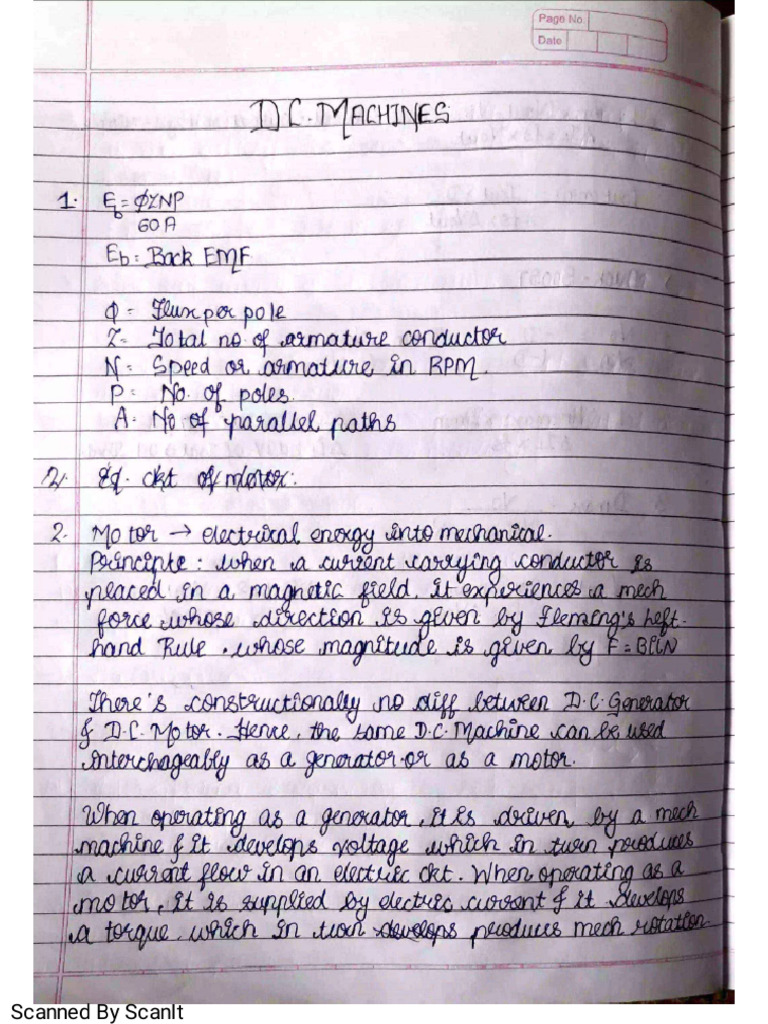 Page No.
Date
D.C. MACHINES
1. Eb = ϕZNP
60A
Eb = Back EMF
ϕ = Flux per pole
Z = Total no. of armature conductor
N = Speed or armature in RPM.
P = No. of poles.
A = No of parallel paths
2. Eq. ckt of motor:
2. Motor → electrical energy into mechanical.
Principle : when a current carrying conductor is
placed in a magnetic field, it experiences a mech
force whose direction is given by Fleming's Left-
hand Rule. whose magnitude is given by F = BIlN
There's constructionally no diff between D.C. Generator
& D.C. Motor. Hence, the same D.C. Machine can be used
interchageably as a generator or as a motor.
When operating as a generator, it is driven by a mech
machine & it develops voltage which in turn produces
a current flow in an electric ckt. When operating as a
motor, it is supplied by electric current & it develops
a torque which in turn develops produces mech rotation
Scanned By ScanIt